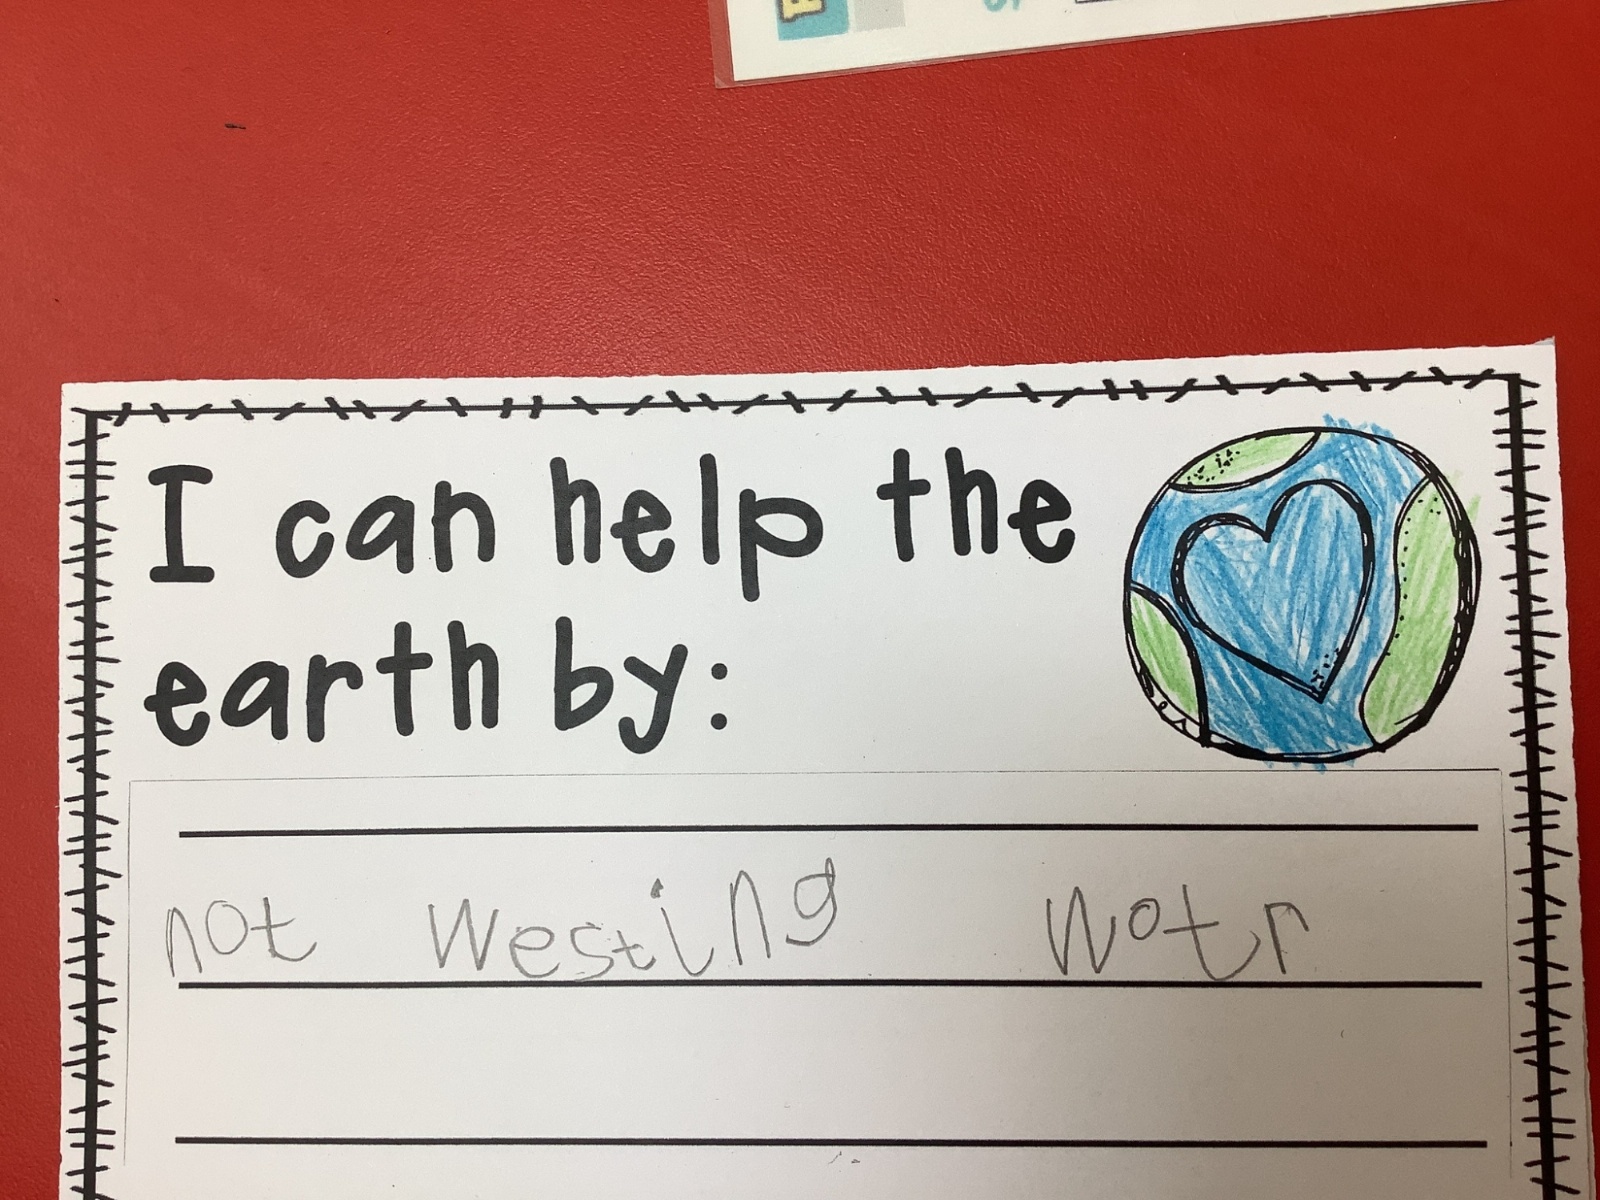 I can help the
earth by:
not westing wotr